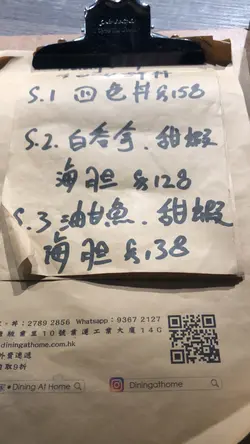 S.1 四色丼 $158
S.2. 白吞拿.甜蝦
海胆 $128
S.3.油甘魚.甜蝦
海胆 $138
丼：2789 2856 Whatsapp：9367 2127
業街10號業運工業大廈14G
diningathome.com.hk
外賣速遞
自取9折
Dining At Home
Diningathome